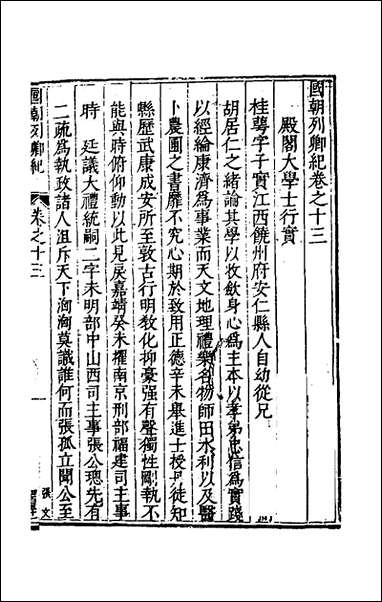 國朝列卿紀卷之十三
殿閣大學士行實
桂萼字子實江西饒州府安仁縣人自幼從兄
胡居仁之緒論其學以收斂身心爲主本以孝弟忠信爲實踐
以經綸康濟爲事業而天文地理禮樂名物師田水利以及醫
卜農圃之書靡不究心期於致用正德辛未舉進士授丹徒知
縣歷武康成安所至敦古行明教化抑豪强有聲獨性剛執不
能與時俯仰動以此見戾嘉靖癸未擢南京刑部福建司主事
時 廷議大禮統嗣二字未明部中山西司主事張公璁先有
二疏爲執政諸人沮斥天下洶洶莫識誰何而張孤立聞公至
國朝列卿紀
卷之十三
張文